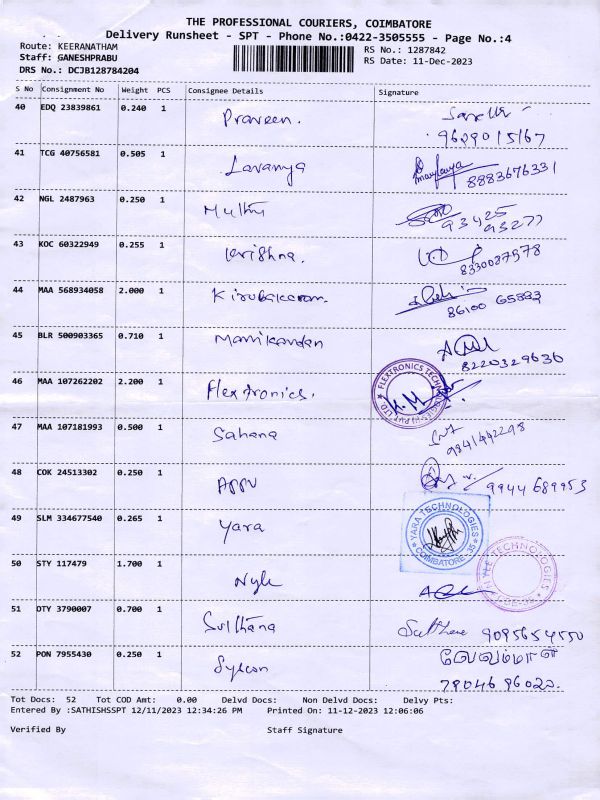 THE PROFESSIONAL COURIERS, COIMBATORE
Delivery Runsheet - SPT - Phone No.:0422-3505555 - Page No.:4
Route: KEERANATHAM RS No.: 1287842
Staff: GANESHPRABU RS Date: 11-Dec-2023
DRS No.: DCJB128784204
S No Consignment No Weight PCS Consignee Details Signature
40 EDQ 23839861 0.240 1 Praveen.
9629015167
41 TCG 40756581 0.505 1 Lavanya
8883676331
42 NGL 2487963 0.250 1 Muthu
93425
93277
43 KOC 60322949 0.255 1 Krishna.
8330087578
44 MAA 568934058 2.000 1 Kirubakaran.
86100 65883
45 BLR 500903365 0.710 1 Manikandan
8220329636
46 MAA 107262202 2.200 1 Flextronics.
FLEXTRONICS TECHNOLOGIES
47 MAA 107181993 0.500 1 Sahana
9841492298
48 COK 24513302 0.250 1 Appu
9944689953
49 SLM 334677540 0.265 1 Yara
YARA TECHNOLOGIES
COIMBATORE-35
50 STY 117479 1.700 1 Nyle
NYLE TECHNOLOGIES
51 OTY 3790007 0.700 1 Sulthana
9095654550
52 PON 7955430 0.250 1 Syscon
வேலம்மாள்
79046 96022.
Tot Docs: 52 Tot COD Amt: 0.00 Delvd Docs: Non Delvd Docs: Delvy Pts:
Entered By :SATHISHSSPT 12/11/2023 12:34:26 PM Printed On: 11-12-2023 12:06:06
Verified By Staff Signature